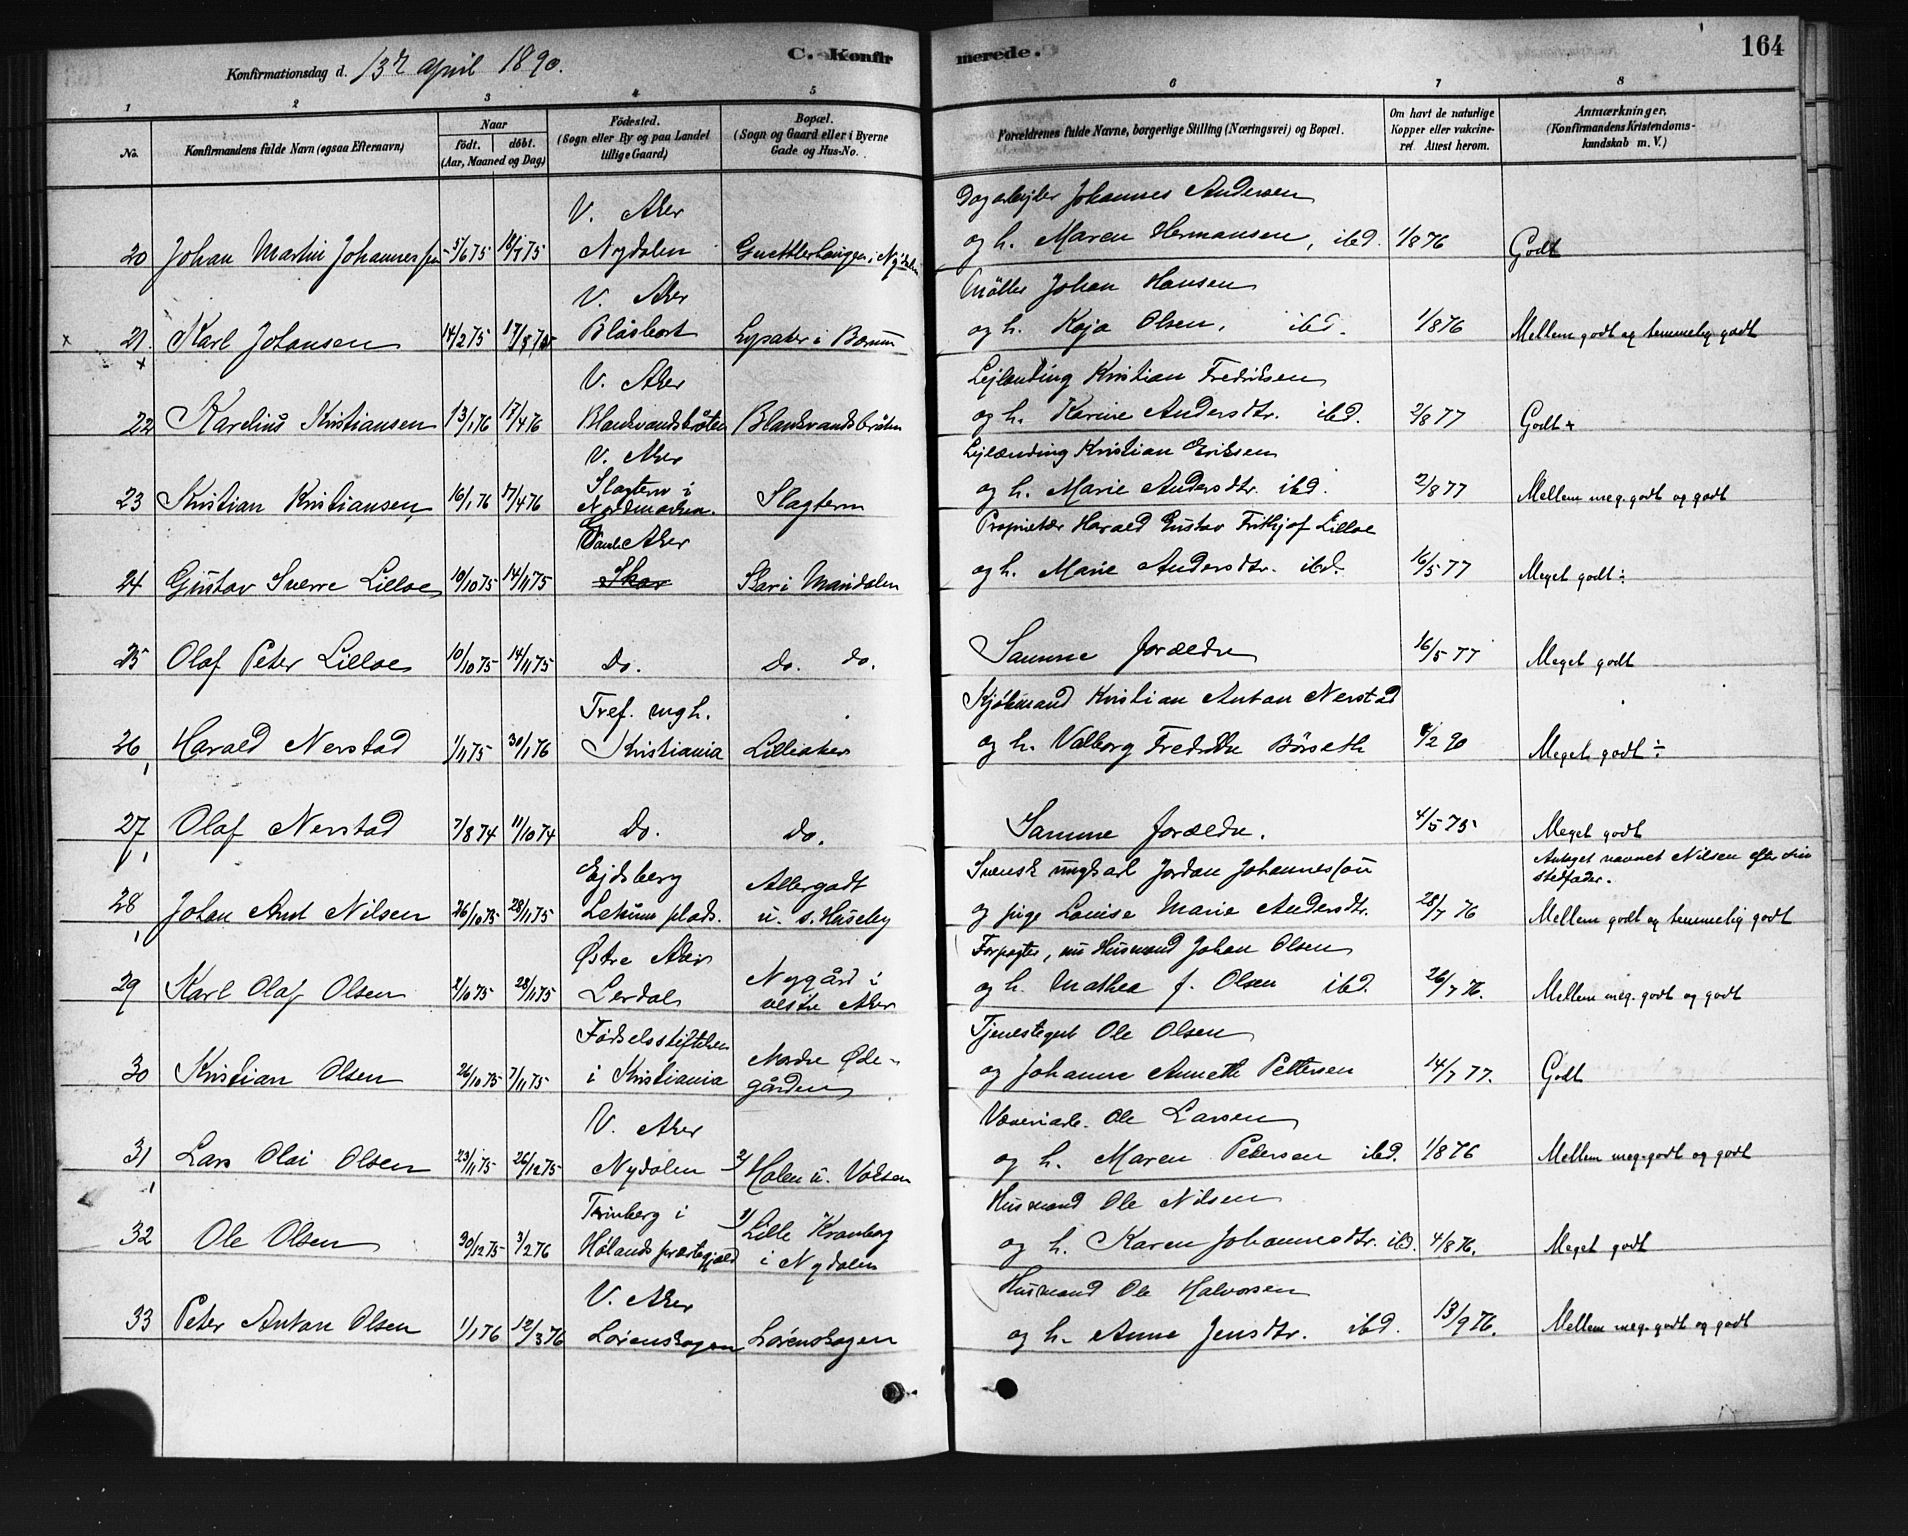 Konfirmationsdag d. 13de April 1890.
C. Konfir
merede.
164
1
2
3
4
5
6
7
8
No.
Konfirmandens fulde Navn (ogsaa Efternavn)
Naar
født. døbt.
(Aar, Maaned og Dag)
Fødested.
(Sogn eller By og paa Landet
tillige Gaard)
Bopæl.
(Sogn og Gaard eller i Byerne
Gade og Hus-No.
Forældrenes fulde Navne, borgerlige Stilling (Næringsvei) og Bopæl.
Om havt de naturlige
Kopper eller vakcine-
ret. Attest herom.
Anmærkninger.
(Konfirmandens Kristendoms-
kundskab m. V.)
V. Aker
Dagarbejder Johannes Andersen
20 Johan Martin Johannessen 5/6 75 18/7 75 Nydalen i Nydalen
og h. Maren Hermansen, ibd. 1/8 76 Godt
V. Aker
Møller Johan Hansen
x 21. Karl Johansen 14/2 75 17/8 75 Lysaker i Bærum
og h. Kaja Olsen. ibd. 1/8 76 Mellem godt og temmelig godt
x
V. Aker
Lejlænding Kristian Fredriksen
22 Karelius Kristiansen 13/1 76 17/4 76 Blankvandsbråten Blankvandsbråten
og h. Karine Andersdtr. ibd. 2/8 77 Godt +
V. Aker
Lejlænding Kristian Eriksen
Slagtern i
23 Kristian Kristiansen 16/1 76 17/4 76 Nordmarken. Slagtern
og h. Marie Andersdtr. ibd. 2/8 77 Mellem meg. godt og godt
Gamle Aker
Proprietær Harald Gustav Frithjof Lilloe
24 Gustav Sverre Lilloe 10/10 75 14/11 75 Skar Skar i Maridalen
og h. Marie Andersdtr. ibd. 16/5 77 Meget godt ÷
25 Olaf Peter Lilloe 10/10 75 14/11 75 Do. do. do.
Samme forældre 16/5 77 Meget godt
Tref. mgh.
Kjøbmand Kristian Anton Nerstad
26 Harald Nerstad 1/11 75 30/1 76 Kristiania Lilleaker
og h. Valborg Fredrikke Børseth /2 90 Meget godt ÷
27 Olaf Nerstad 7/8 74 11/10 74 Do. Do.
Samme forældre. 4/5 75 Meget godt
Ejdsberg
Svensk ungkarl Jordan Johannesson
Antaget navnet Nilsen efter sin
stedfader.
28 Johan Nilsen 26/10 75 28/11 75 plads. u. s. Huseby
og pige Louise Marie Andersdtr. 28/7 76 Mellem godt og temmelig godt
Østre Aker
Forpagter, nu Husmand Johan Olsen
29 Karl Olaf Olsen 2/10 75 28/11 75 Lerdal Nygård i
vestre Aker
og h. Mathea f. Olsen ibd. 26/7 76. Mellem meg. godt og godt
Fødselsstiftelsen
Tjenestegut Ole Olsen
30 Kristian Olsen 26/10 75 7/11 75 i Kristiania Nordre Øde-
gården
og Johanne Annette Pettersen 14/7 77. Godt
V. Aker
Væveriarb. Ole Larsen
31 Lars Olai Olsen 23/11 75 26/12 75 Nydalen 2/ Holen u. Voldsen
og h. Maren Petersen ibd. 1/8 76 Mellem meg. godt og godt
i
Husmand Ole Nilsen
32 Ole Olsen 30/12 75 3/2 76 Hølands præstegjæld 1/ Lille
i Nydalen
og h. Karen Johannesdtr. ibd. 4/8 76. Meget godt
V. Aker
Husmand Ole Halvorsen
33 Peter Anton Olsen 1/1 76 12/3 76 Lørenskogen Lørenskogen
og h. Anne Jensdtr. ibd. 13/9 76. Mellem meg. godt og godt